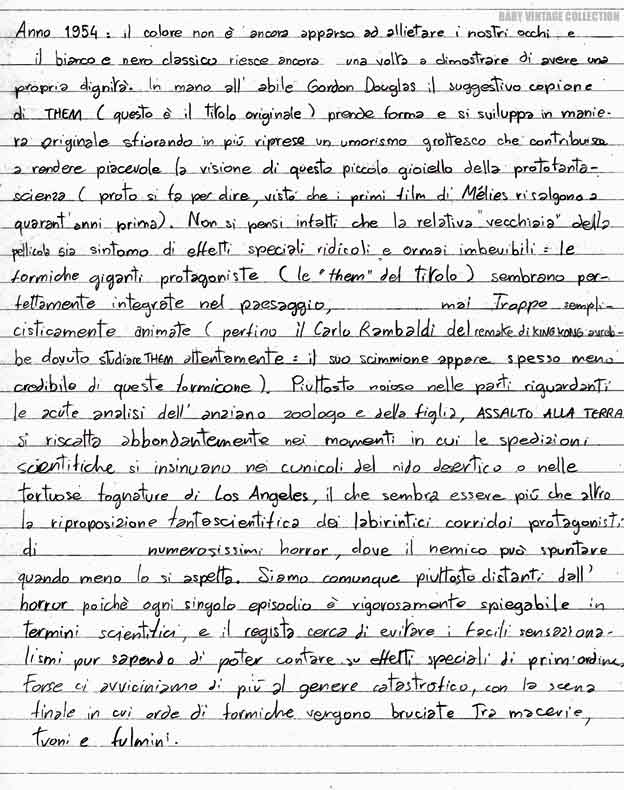 BABY VINTAGE COLLECTION
Anno 1954: il colore non è ancora apparso ad allietare i nostri occhi e
il bianco e nero classico riesce ancora una volta a dimostrare di avere una
propria dignità. In mano all'abile Gordon Douglas il suggestivo copione
di THEM (questo è il titolo originale) prende forma e si sviluppa in manie-
ra originale sfiorando in più riprese un umorismo grottesco che contribuisce
a rendere piacevole la visione di questo piccolo gioiello della protofanta-
scienza (proto si fa per dire, visto che i primi film di Mélies risalgono a
quarant'anni prima). Non si pensi infatti che la relativa "vecchiaia" della
pellicola sia sintomo di effetti speciali ridicoli e ormai imbevibili: le
formiche giganti protagoniste (le "them" del titolo) sembrano per-
fettamente integrate nel paesaggio, mai troppo sempli-
cisticamente animate (perfino il Carlo Rambaldi del remake di KING KONG avreb-
be dovuto studiare THEM attentamente: il suo scimmione appare spesso meno
credibile di queste formicone). Piuttosto noioso nelle parti riguardanti
le acute analisi dell'anziano zoologo e della figlia, ASSALTO ALLA TERRA
si riscatta abbondantemente nei momenti in cui le spedizioni
scientifiche si insinuano nei cunicoli del nido desertico o nelle
tortuose fognature di Los Angeles, il che sembra essere più che altro
la riproposizione fantascientifica dei labirintici corridoi protagonisti
di numerosissimi horror, dove il nemico può spuntare
quando meno lo si aspetta. Siamo comunque piuttosto distanti dall'
horror poichè ogni singolo episodio è rigorosamente spiegabile in
termini scientifici, e il regista cerca di evitare i facili sensaziona-
lismi pur sapendo di poter contare su effetti speciali di prim'ordine.
Forse ci avviciniamo di più al genere catastrofico, con la scena
finale in cui orde di formiche vengono bruciate tra macerie,
tuoni e fulmini.